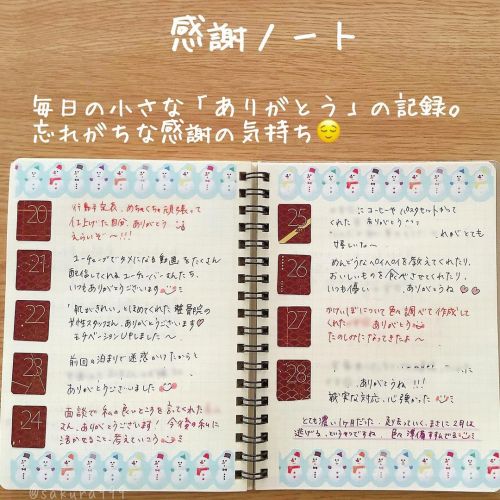 感謝ノート
毎日の小さな「ありがとう」の記録。
忘れがちな感謝の気持ち😌
20
行動予定表、めちゃくちゃ頑張って
仕上げた自分、ありがとう
えらいぞ〜!!!
21
ユーチューブでタメになる動画をたくさん
配信してくれるユーチューバーさんたち、
いつもありがとうございます
22
「肌がきれい」とほめてくれた整骨院の
女性スタッフさん、ありがとうございます♡
モチベーションUPしました〜
23
前回の泊まりで迷惑かけたからと
ありがとうございました
24
面談で私の良いところを言ってくれた
さん、ありがとうございます! 今後の私に
活かせること、答えていこう
25
にコーヒーや パスタセットかって
くれた ありがとう
れがとても
嬉しいな〜
26
めんどうな を教えてくれたり、
おいしいものを食べさせてくれたり、
いつも優しい ありがとうね♡
27
かけいぼについて色々調べて作成して
くれた ありがとう
たのしみになってきたよ〜
28
、ありがとうね!!!
誠実な対応、心強かった
とても濃い1ヶ月だった。 まさに2月は
逃げる、というやつですね。色々準備すすんでる
@sakura1119